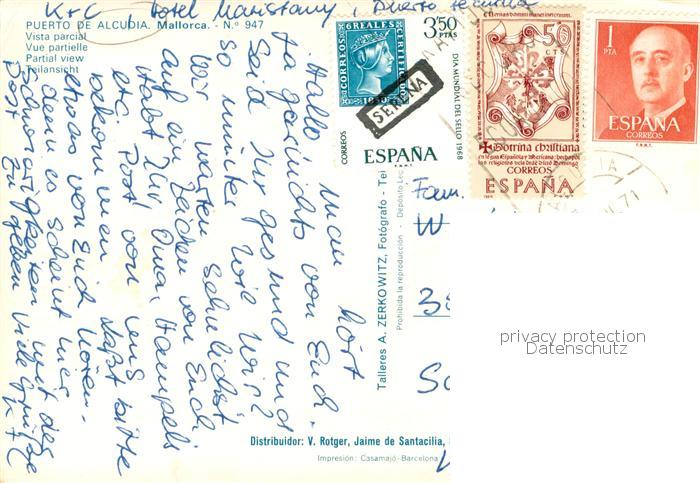 K+C, Hotel Maristany, Puerto Alcudia
PUERTO DE ALCUDIA. Mallorca. - N.º 947
Vista parcial
Vue partielle
Partial view
Teilansicht
3,50
PTAS
CORREOS
REALES
CERTIFICADO
1850
DIA MUNDIAL DEL SELLO 1968
CORREOS
ESPAÑA
F.N.M.T.
SEGUNA
50
CTS
Doctrina christiana
CORREOS
ESPAÑA
1
PTA
ESPAÑA
CORREOS
F.N.M.T.
71
Hallo! Man hört
ja garnichts von Euch.
Seid Ihr gesund und
so munter wie wir?
Wir warten sehnlichst
auf ein Zeichen von Euch
Habt Ihr Oma Hampels
Post von uns
bekommen laßt bitte
etwas von Euch hören.
Denn es scheint hier
Schwierigkeiten mit der
Post zu geben Viele Grüße
K+C
Fam.
W
38
Sc
Talleres A. ZERKOWITZ, Fotógrafo - Tel
Prohibida la reproducción - Depósito Leg
Distribuidor: V. Rotger, Jaime de Santacilia,
Impresión: Casamajó-Barcelona
privacy protection
Datenschutz